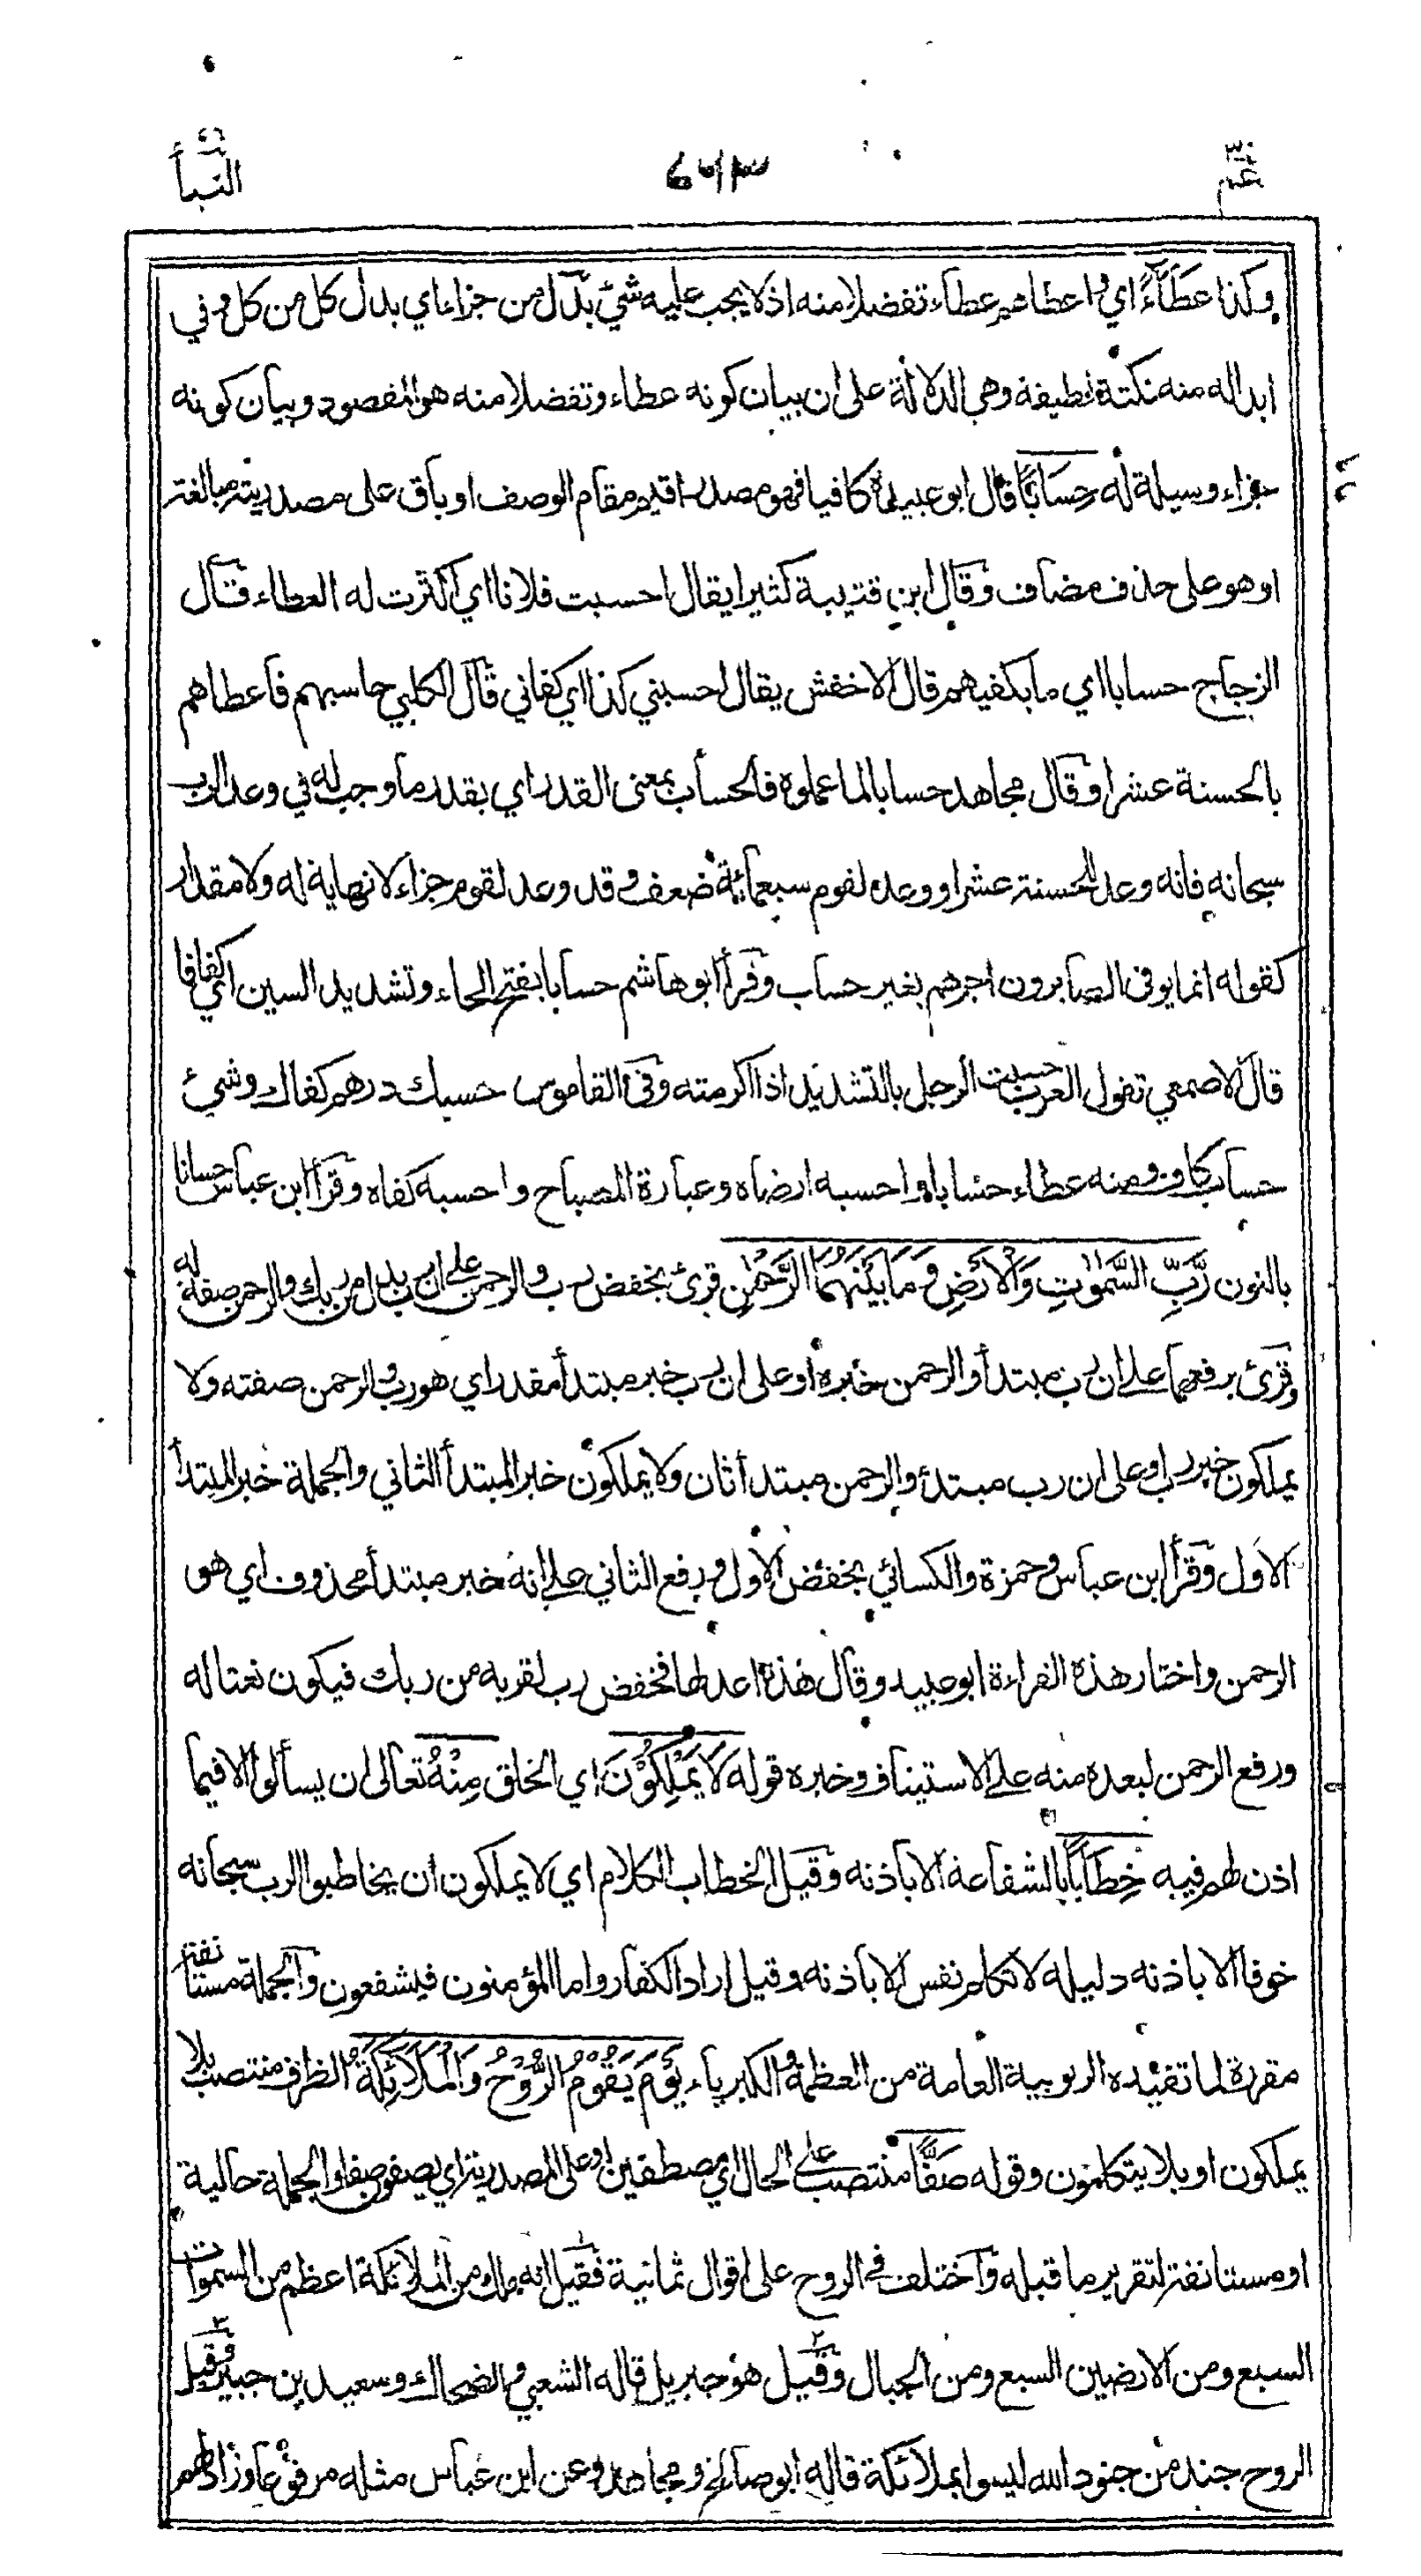 عم ٦٧٣ النبأ
وكذا عَطَآءً اي واعطاهم عطاء تفضلا منه اذ لا يجب عليه شيء بدل من جزاء اي بدل كل من كل وفي
ابداله منه نكتة لطيفة وهي الدلالة على ان بيان كونه عطاء وتفضلا منه هو المقصود وبيان كونه
جزاء وسيلة له حِسَابًا قال ابو عبيدة كافيا فهو مصدر اقيم مقام الوصف او باق على مصدريته مبالغة
او هو على حذف مضاف وقال ابن قتيبة كثيرا يقال احسبت فلانا اي اكثرت له العطاء قال
الزجاج حسابا اي ما يكفيهم قال الاخفش يقال احسبني كذا اي كفاني قال الكلبي حاسبهم فاعطاهم
بالحسنة عشرا وقال مجاهد حسابا لما عملوه فالحساب بمعنى القدر اي بقدر ما وجب له في وعد الرب
سبحانه فانه وعد للحسنة عشرا ووعد لقوم سبعمائة ضعف وقد وعد لقوم جزاء لا نهاية له ولا مقدار
كقوله انما يوفى الصابرون اجرهم بغير حساب وقرأ ابو هاشم حسابا بفتح الحاء وتشديد السين اي كفافا
قال الاصمعي تقول العرب حسبت الرجل بالتشديد اذا اكرمته وفي القاموس حسبك درهم كفاك وشيء
حساب كاف ومنه عطاء حسابا واحسبه ارضاه وعبارة المصباح واحسبه كفاه وقرأ ابن عباس حسانا
بالنون رَبِّ السَّمٰوٰتِ وَالْاَرْضِ وَمَا بَيْنَهُمَا الرَّحْمٰنِ قرئ بخفض رب والرحمن على ان رب بدل من ربك والرحمن صفة له
وقرئ برفعهما على ان رب مبتدأ والرحمن خبره او على ان رب خبر مبتدأ مقدر اي هو رب والرحمن صفته ولا
يملكون خبر رب او على ان رب مبتدء والرحمن مبتدأ ثان ولا يملكون خبر المبتدأ الثاني والجملة خبر المبتدأ
الاول وقرأ ابن عباس وحمزة والكسائي بخفض الاول ورفع الثاني على انه خبر مبتدأ محذوف اي هو
الرحمن واختار هذه القراءة ابو عبيد وقال هذه اعدلها فخفض رب لقربه من ربك فيكون نعتا له
ورفع الرحمن لبعده منه على الاستيناف وخبره قوله لَا يَمْلِكُوْنَ اي الخلق مِنْهُ تعالى ان يسألوا الا فيما
اذن لهم فيه خِطَابًا بالشفاعة الا باذنه وقيل الخطاب الكلام اي لا يملكون ان يخاطبوا الرب سبحانه
خوفا الا باذنه دليله لا تكلم نفس الا باذنه وقيل اراد الكفار واما المؤمنون فيشفعون والجملة مستانفة
مقررة لما تفيده الربوبية العامة من العظمة والكبرياء يَوْمَ يَقُوْمُ الرُّوْحُ وَالْمَلَآئِكَةُ الظرف منتصب بلا
يملكون او بلا يتكلمون وقوله صَفًّا منتصب على الحال اي مصطفين او على المصدرية اي يصفون صفا والجملة حالية
او مستانفة لتقرير ما قبله واختلف في الروح على اقوال ثمانية فقيل انه ملك من الملائكة اعظم من السموات
السبع ومن الارضين السبع ومن الجبال وقيل هو جبريل قاله الشعبي والضحاك وسعيد بن جبير وقيل
الروح جند من جنود الله ليسوا بملائكة قاله ابو صالح ومجاهد وعن ابن عباس مثله مرفوعا وزاد لهم